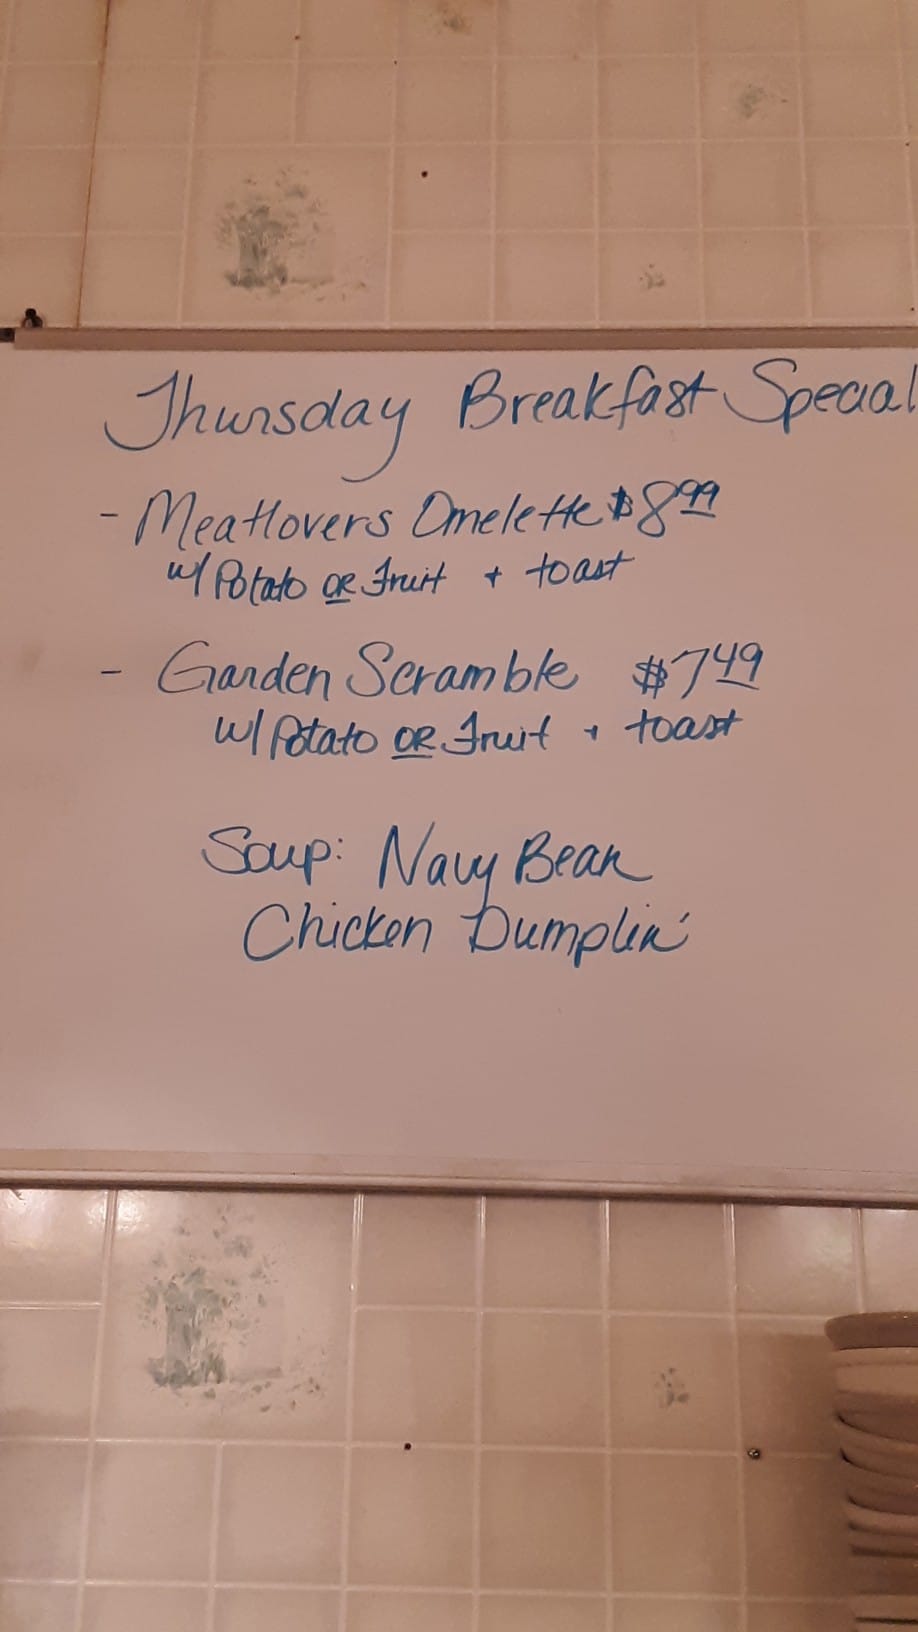 Thursday Breakfast Special
- Meatlovers Omelette $8.99
w/ Potato OR Fruit + toast
- Garden Scramble $7.49
w/ Potato OR Fruit + toast
Soup: Navy Bean
Chicken Dumplin'